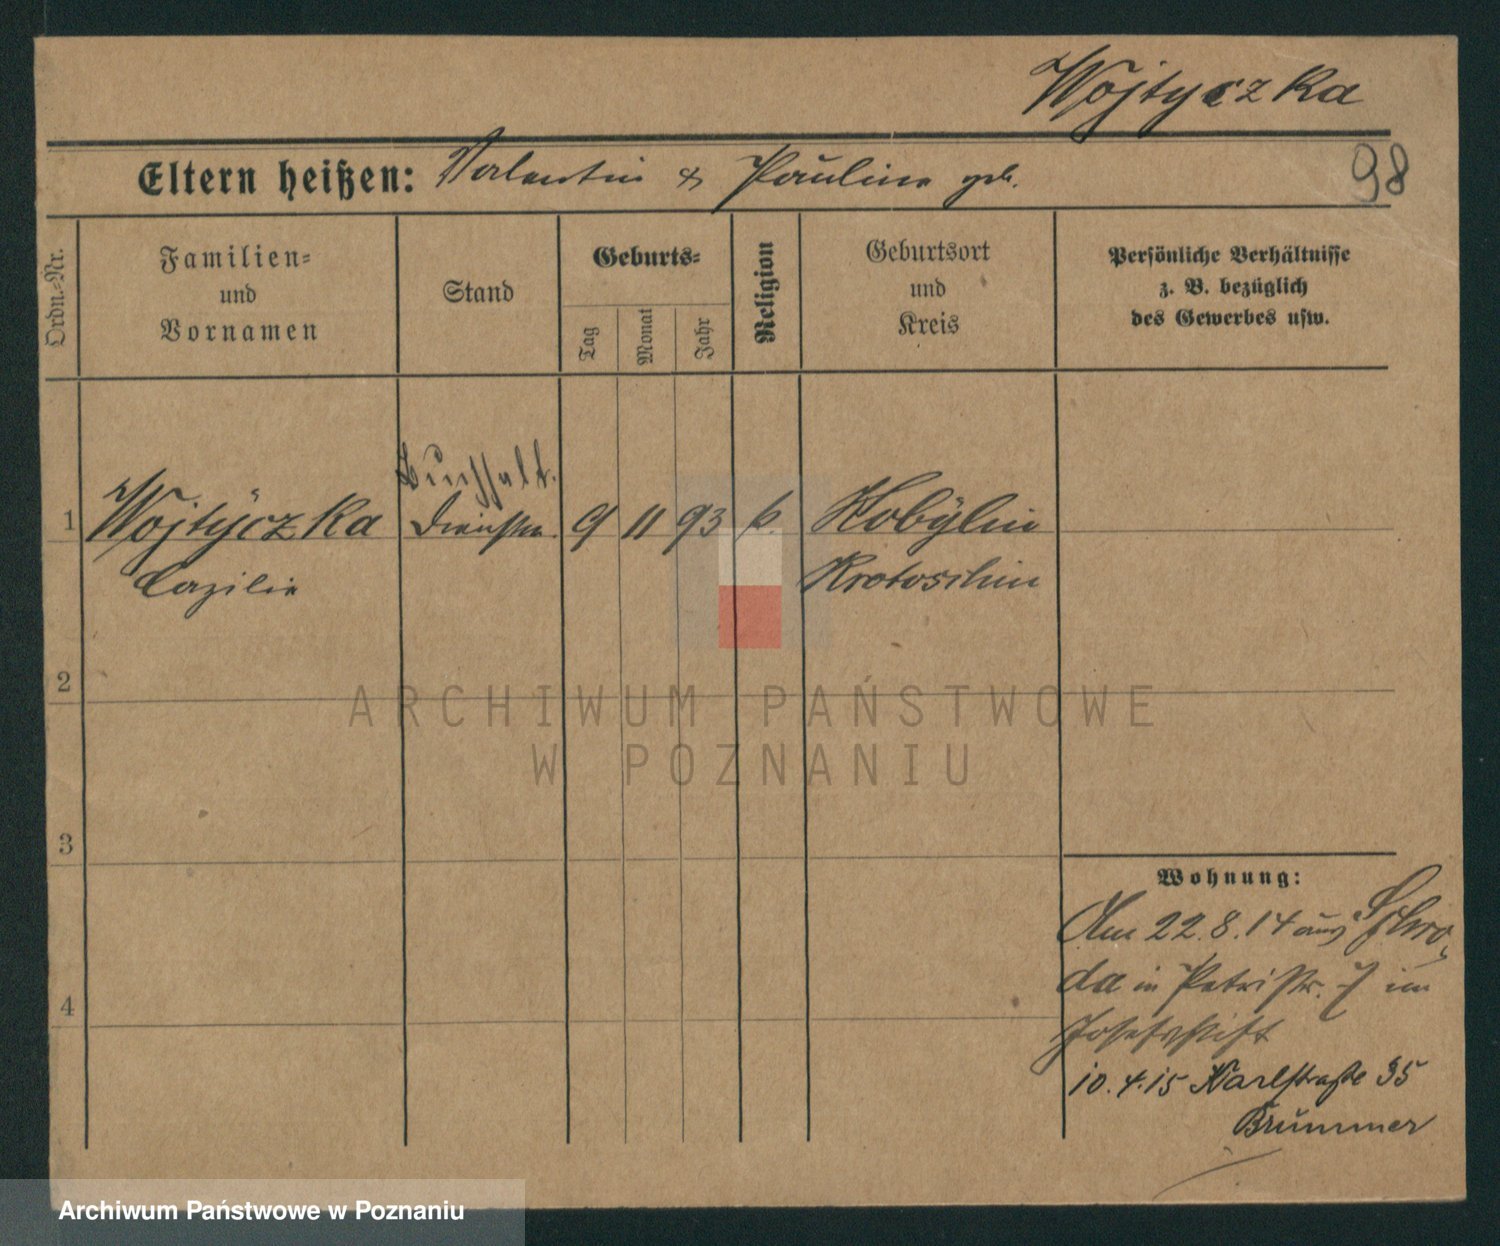 Wojtyczka
Eltern heißen: Valentin & Pauline geb.
98
Ordn.-Nr.
Familien-
und
Vornamen
Stand
Geburts-
Tag
Monat
Jahr
Religion
Geburtsort
und
Kreis
Persönliche Verhältnisse
z. B. bezüglich
des Gewerbes usw.
Buchhalt.
1 Wojtyczka 9 11 93 k. Kobylin
Cäzilie Krotoschin
2
3
4
ARCHIWUM PAŃSTWOWE
W POZNANIU
Wohnung:
Am 22.8.14 aus Schro-
da in Petristr. 7 im
Josefstift
10.4.15 Karlstraße 35
Brummer
Archiwum Państwowe w Poznaniu